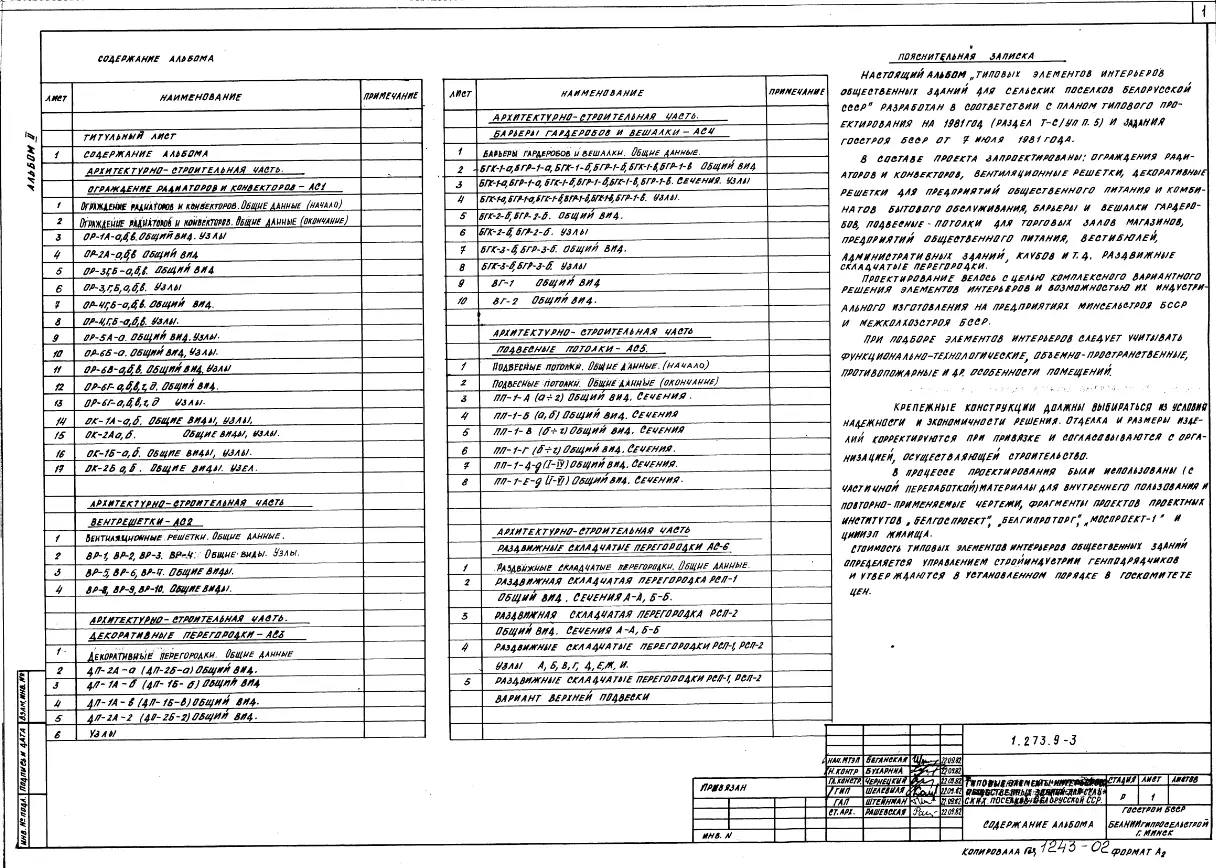 1
АЛЬБОМ II
СОДЕРЖАНИЕ АЛЬБОМА
ЛИСТ НАИМЕНОВАНИЕ ПРИМЕЧАНИЕ
ТИТУЛЬНЫЙ ЛИСТ
1 СОДЕРЖАНИЕ АЛЬБОМА
АРХИТЕКТУРНО-СТРОИТЕЛЬНАЯ ЧАСТЬ.
ОГРАЖДЕНИЕ РАДИАТОРОВ И КОНВЕКТОРОВ-АС1
1 ОГРАЖДЕНИЕ РАДИАТОРОВ И КОНВЕКТОРОВ. ОБЩИЕ ДАННЫЕ (НАЧАЛО)
2 ОГРАЖДЕНИЕ РАДИАТОРОВ И КОНВЕКТОРОВ. ОБЩИЕ ДАННЫЕ (ОКОНЧАНИЕ)
3 ОР-1А-а,б,в. ОБЩИЙ ВИД. УЗЛЫ
4 ОР-2А-а,б,в ОБЩИЙ ВИД
5 ОР-3,Г,Б-а,б,в. ОБЩИЙ ВИД
6 ОР-3,Г,Б,а,б,в. УЗЛЫ
7 ОР-4,Г,Б-а,б,в. ОБЩИЙ ВИД.
8 ОР-4,Г,Б-а,б,в. УЗЛЫ.
9 ОР-5А-а. ОБЩИЙ ВИД. УЗЛЫ.
10 ОР-6Б-а. ОБЩИЙ ВИД. УЗЛЫ.
11 ОР-6В-а,б,в. ОБЩИЙ ВИД. УЗЛЫ
12 ОР-6Г-а,б,в,г,д. ОБЩИЙ ВИД.
13 ОР-6Г-а,б,в,г,д УЗЛЫ.
14 ОК-1А-а,б. ОБЩИЕ ВИДЫ, УЗЛЫ.
15 ОК-2Аа,б. ОБЩИЕ ВИДЫ, УЗЛЫ.
16 ОК-1Б-а,б. ОБЩИЕ ВИДЫ, УЗЛЫ.
17 ОК-2Б а,б. ОБЩИЕ ВИДЫ. УЗЕЛ.
АРХИТЕКТУРНО-СТРОИТЕЛЬНАЯ ЧАСТЬ
ВЕНТРЕШЕТКИ-АС2
1 ВЕНТИЛЯЦИОННЫЕ РЕШЕТКИ. ОБЩИЕ ДАННЫЕ.
2 ВР-1, ВР-2, ВР-3. ВР-4. ОБЩИЕ ВИДЫ. УЗЛЫ.
3 ВР-5, ВР-6, ВР-7. ОБЩИЕ ВИДЫ.
4 ВР-8, ВР-9, ВР-10. ОБЩИЕ ВИДЫ.
АРХИТЕКТУРНО-СТРОИТЕЛЬНАЯ ЧАСТЬ.
ДЕКОРАТИВНЫЕ ПЕРЕГОРОДКИ-АС3
1 ДЕКОРАТИВНЫЕ ПЕРЕГОРОДКИ. ОБЩИЕ ДАННЫЕ
2 ДП-2А-а (ДП-2Б-а) ОБЩИЙ ВИД.
3 ДП-1А-б (ДП-1Б-б) ОБЩИЙ ВИД
4 ДП-1А-в (ДП-1Б-в) ОБЩИЙ ВИД.
5 ДП-2А-г (ДП-2Б-г) ОБЩИЙ ВИД.
6 УЗЛЫ
ЛИСТ НАИМЕНОВАНИЕ ПРИМЕЧАНИЕ
АРХИТЕКТУРНО-СТРОИТЕЛЬНАЯ ЧАСТЬ.
БАРЬЕРЫ ГАРДЕРОБОВ И ВЕШАЛКИ-АС4
1 БАРЬЕРЫ ГАРДЕРОБОВ И ВЕШАЛКИ. ОБЩИЕ ДАННЫЕ.
2 БГК-1-а, БГР-1-а, БГК-1-б, БГР-1-б, БГК-1-в, БГР-1-в ОБЩИЙ ВИД
3 БГК-1-а, БГР-1-а, БГК-1-б, БГР-1-б, БГК-1-в, БГР-1-в. СЕЧЕНИЯ. УЗЛЫ
4 БГК-1-а, БГР-1-а, БГК-1-б, БГР-1-б, БГК-1-в, БГР-1-в. УЗЛЫ.
5 БГК-2-б, БГР-2-б. ОБЩИЙ ВИД.
6 БГК-2-б, БГР-2-б. УЗЛЫ
7 БГК-3-б, БГР-3-б. ОБЩИЙ ВИД.
8 БГК-3-б, БГР-3-б. УЗЛЫ
9 ВГ-1 ОБЩИЙ ВИД
10 ВГ-2 ОБЩИЙ ВИД.
АРХИТЕКТУРНО-СТРОИТЕЛЬНАЯ ЧАСТЬ
ПОДВЕСНЫЕ ПОТОЛКИ-АС5.
1 ПОДВЕСНЫЕ ПОТОЛКИ. ОБЩИЕ ДАННЫЕ. (НАЧАЛО)
2 ПОДВЕСНЫЕ ПОТОЛКИ. ОБЩИЕ ДАННЫЕ (ОКОНЧАНИЕ)
3 ПП-1-А (а÷г) ОБЩИЙ ВИД. СЕЧЕНИЯ.
4 ПП-1-Б (а,б) ОБЩИЙ ВИД. СЕЧЕНИЯ
5 ПП-1-В (б÷г) ОБЩИЙ ВИД. СЕЧЕНИЯ
6 ПП-1-Г (б÷г) ОБЩИЙ ВИД. СЕЧЕНИЯ.
7 ПП-1-Д-д (I-IV) ОБЩИЙ ВИД. СЕЧЕНИЯ.
8 ПП-1-Е-д (I-VI) ОБЩИЙ ВИД. СЕЧЕНИЯ.
АРХИТЕКТУРНО-СТРОИТЕЛЬНАЯ ЧАСТЬ
РАЗДВИЖНЫЕ СКЛАДЧАТЫЕ ПЕРЕГОРОДКИ АС-6
1 РАЗДВИЖНЫЕ СКЛАДЧАТЫЕ ПЕРЕГОРОДКИ. ОБЩИЕ ДАННЫЕ.
2 РАЗДВИЖНАЯ СКЛАДЧАТАЯ ПЕРЕГОРОДКА РСП-1
ОБЩИЙ ВИД. СЕЧЕНИЯ А-А, Б-Б.
3 РАЗДВИЖНАЯ СКЛАДЧАТАЯ ПЕРЕГОРОДКА РСП-2
ОБЩИЙ ВИД. СЕЧЕНИЯ А-А, Б-Б
4 РАЗДВИЖНЫЕ СКЛАДЧАТЫЕ ПЕРЕГОРОДКИ РСП-1, РСП-2
УЗЛЫ А, Б, В, Г, Д, Е, Ж, И.
5 РАЗДВИЖНЫЕ СКЛАДЧАТЫЕ ПЕРЕГОРОДКИ РСП-1, РСП-2
ВАРИАНТ ВЕРХНЕЙ ПОДВЕСКИ
ПОЯСНИТЕЛЬНАЯ ЗАПИСКА
НАСТОЯЩИЙ АЛЬБОМ „ТИПОВЫХ ЭЛЕМЕНТОВ ИНТЕРЬЕРОВ
ОБЩЕСТВЕННЫХ ЗДАНИЙ ДЛЯ СЕЛЬСКИХ ПОСЕЛКОВ БЕЛОРУССКОЙ
СССР" РАЗРАБОТАН В СООТВЕТСТВИИ С ПЛАНОМ ТИПОВОГО ПРО-
ЕКТИРОВАНИЯ НА 1981 ГОД (РАЗДЕЛ Т-С/УП П.5) И ЗАДАНИЯ
ГОССТРОЯ БССР ОТ 7 ИЮЛЯ 1981 ГОДА.
В СОСТАВЕ ПРОЕКТА ЗАПРОЕКТИРОВАНЫ: ОГРАЖДЕНИЯ РАДИ-
АТОРОВ И КОНВЕКТОРОВ, ВЕНТИЛЯЦИОННЫЕ РЕШЕТКИ, ДЕКОРАТИВНЫЕ
РЕШЕТКИ ДЛЯ ПРЕДПРИЯТИЙ ОБЩЕСТВЕННОГО ПИТАНИЯ И КОМБИ-
НАТОВ БЫТОВОГО ОБСЛУЖИВАНИЯ, БАРЬЕРЫ И ВЕШАЛКИ ГАРДЕРО-
БОВ, ПОДВЕСНЫЕ ПОТОЛКИ ДЛЯ ТОРГОВЫХ ЗАЛОВ МАГАЗИНОВ,
ПРЕДПРИЯТИЙ ОБЩЕСТВЕННОГО ПИТАНИЯ, ВЕСТИБЮЛЕЙ,
АДМИНИСТРАТИВНЫХ ЗДАНИЙ, КЛУБОВ И Т.Д. РАЗДВИЖНЫЕ
СКЛАДЧАТЫЕ ПЕРЕГОРОДКИ.
ПРОЕКТИРОВАНИЕ ВЕЛОСЬ С ЦЕЛЬЮ КОМПЛЕКСНОГО ВАРИАНТНОГО
РЕШЕНИЯ ЭЛЕМЕНТОВ ИНТЕРЬЕРОВ И ВОЗМОЖНОСТЬЮ ИХ ИНДУСТРИ-
АЛЬНОГО ИЗГОТОВЛЕНИЯ НА ПРЕДПРИЯТИЯХ МИНСЕЛЬСТРОЯ БССР
И МЕЖКОЛХОЗСТРОЯ БССР.
ПРИ ПОДБОРЕ ЭЛЕМЕНТОВ ИНТЕРЬЕРОВ СЛЕДУЕТ УЧИТЫВАТЬ
ФУНКЦИОНАЛЬНО-ТЕХНОЛОГИЧЕСКИЕ, ОБЪЕМНО-ПРОСТРАНСТВЕННЫЕ,
ПРОТИВОПОЖАРНЫЕ И ДР. ОСОБЕННОСТИ ПОМЕЩЕНИЙ.
КРЕПЕЖНЫЕ КОНСТРУКЦИИ ДОЛЖНЫ ВЫБИРАТЬСЯ ИЗ УСЛОВИЯ
НАДЕЖНОСТИ И ЭКОНОМИЧНОСТИ РЕШЕНИЯ. ОТДЕЛКА И РАЗМЕРЫ ИЗДЕ-
ЛИЙ КОРРЕКТИРУЮТСЯ ПРИ ПРИВЯЗКЕ И СОГЛАСОВЫВАЮТСЯ С ОРГА-
НИЗАЦИЕЙ, ОСУЩЕСТВЛЯЮЩЕЙ СТРОИТЕЛЬСТВО.
В ПРОЦЕССЕ ПРОЕКТИРОВАНИЯ БЫЛИ ИСПОЛЬЗОВАНЫ (С
ЧАСТИЧНОЙ ПЕРЕРАБОТКОЙ) МАТЕРИАЛЫ ДЛЯ ВНУТРЕННЕГО ПОЛЬЗОВАНИЯ И
ПОВТОРНО-ПРИМЕНЯЕМЫЕ ЧЕРТЕЖИ, ФРАГМЕНТЫ ПРОЕКТОВ ПРОЕКТНЫХ
ИНСТИТУТОВ „БЕЛГОСПРОЕКТ", „БЕЛГИПРОТОРГ", „МОСПРОЕКТ-1" И
ЦНИИЭП ЖИЛИЩА.
СТОИМОСТЬ ТИПОВЫХ ЭЛЕМЕНТОВ ИНТЕРЬЕРОВ ОБЩЕСТВЕННЫХ ЗДАНИЙ
ОПРЕДЕЛЯЕТСЯ УПРАВЛЕНИЕМ СТРОЙИНДУСТРИИ ГЕНПОДРЯДЧИКОВ
И УТВЕРЖДАЮТСЯ В УСТАНОВЛЕННОМ ПОРЯДКЕ В ГОСКОМИТЕТЕ
ЦЕН.
ИНВ. № ПОДЛ. ПОДПИСЬ И ДАТА ВЗАМ. ИНВ. №
ПРИВЯЗАН
ИНВ. N
1.273.9-3
НАЧ. МТЭЛ БЕГАНСКАЯ 22.09.82
Н. КОНТР БУХАРИНА 22.09.82
ГЛ. КОНСТР ЧЕРНЕЦКИЙ 22.09.82
ГИП ШЕЛЕВИЛЯ 22.09.82
ГАП ШТЕЙНМАН 22.09.82
СТ. АРХ. РАШЕВСКАЯ 22.09.82
ТИПОВЫЕ ЭЛЕМЕНТЫ ИНТЕРЬЕРОВ
ОБЩЕСТВЕННЫХ ЗДАНИЙ ДЛЯ СЕЛЬ-
СКИХ ПОСЕЛКОВ БЕЛОРУССКОЙ ССР.
СТАДИЯ ЛИСТ ЛИСТОВ
Р 1
СОДЕРЖАНИЕ АЛЬБОМА
ГОССТРОЙ БССР
БЕЛНИИГИПРОСЕЛЬСТРОЙ
Г. МИНСК
КОПИРОВАЛА 1243-02 ФОРМАТ А2